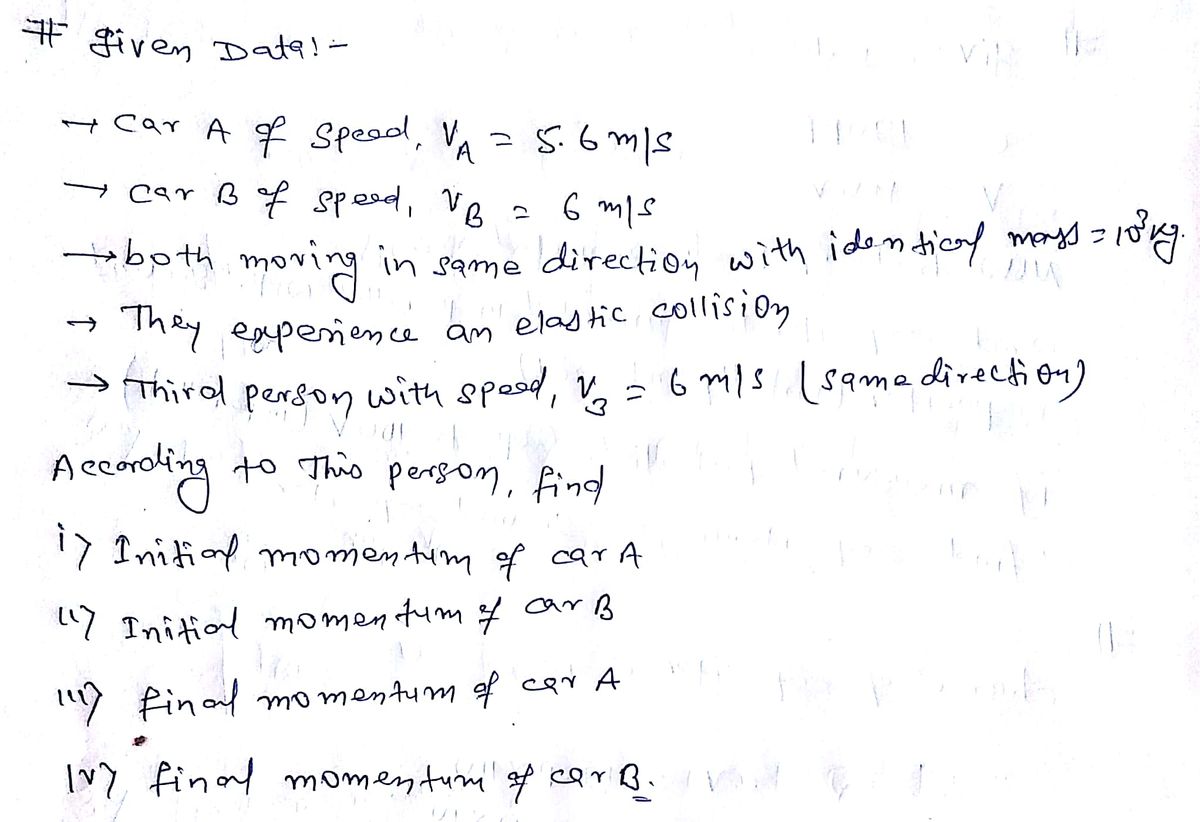 # Given Data:-
→ Car A of Speed, V_A = 5.6 m/s
→ Car B of speed, V_B = 6 m/s
→ both moving in same direction with identical mass = 10³ kg.
→ They experience an elastic collision
→ Third person with speed, V_3 = 6 m/s (same direction)
According to This person, find
i) Initial momentum of car A
ii) Initial momentum of car B
iii) final momentum of car A
iv) final momentum of car B.